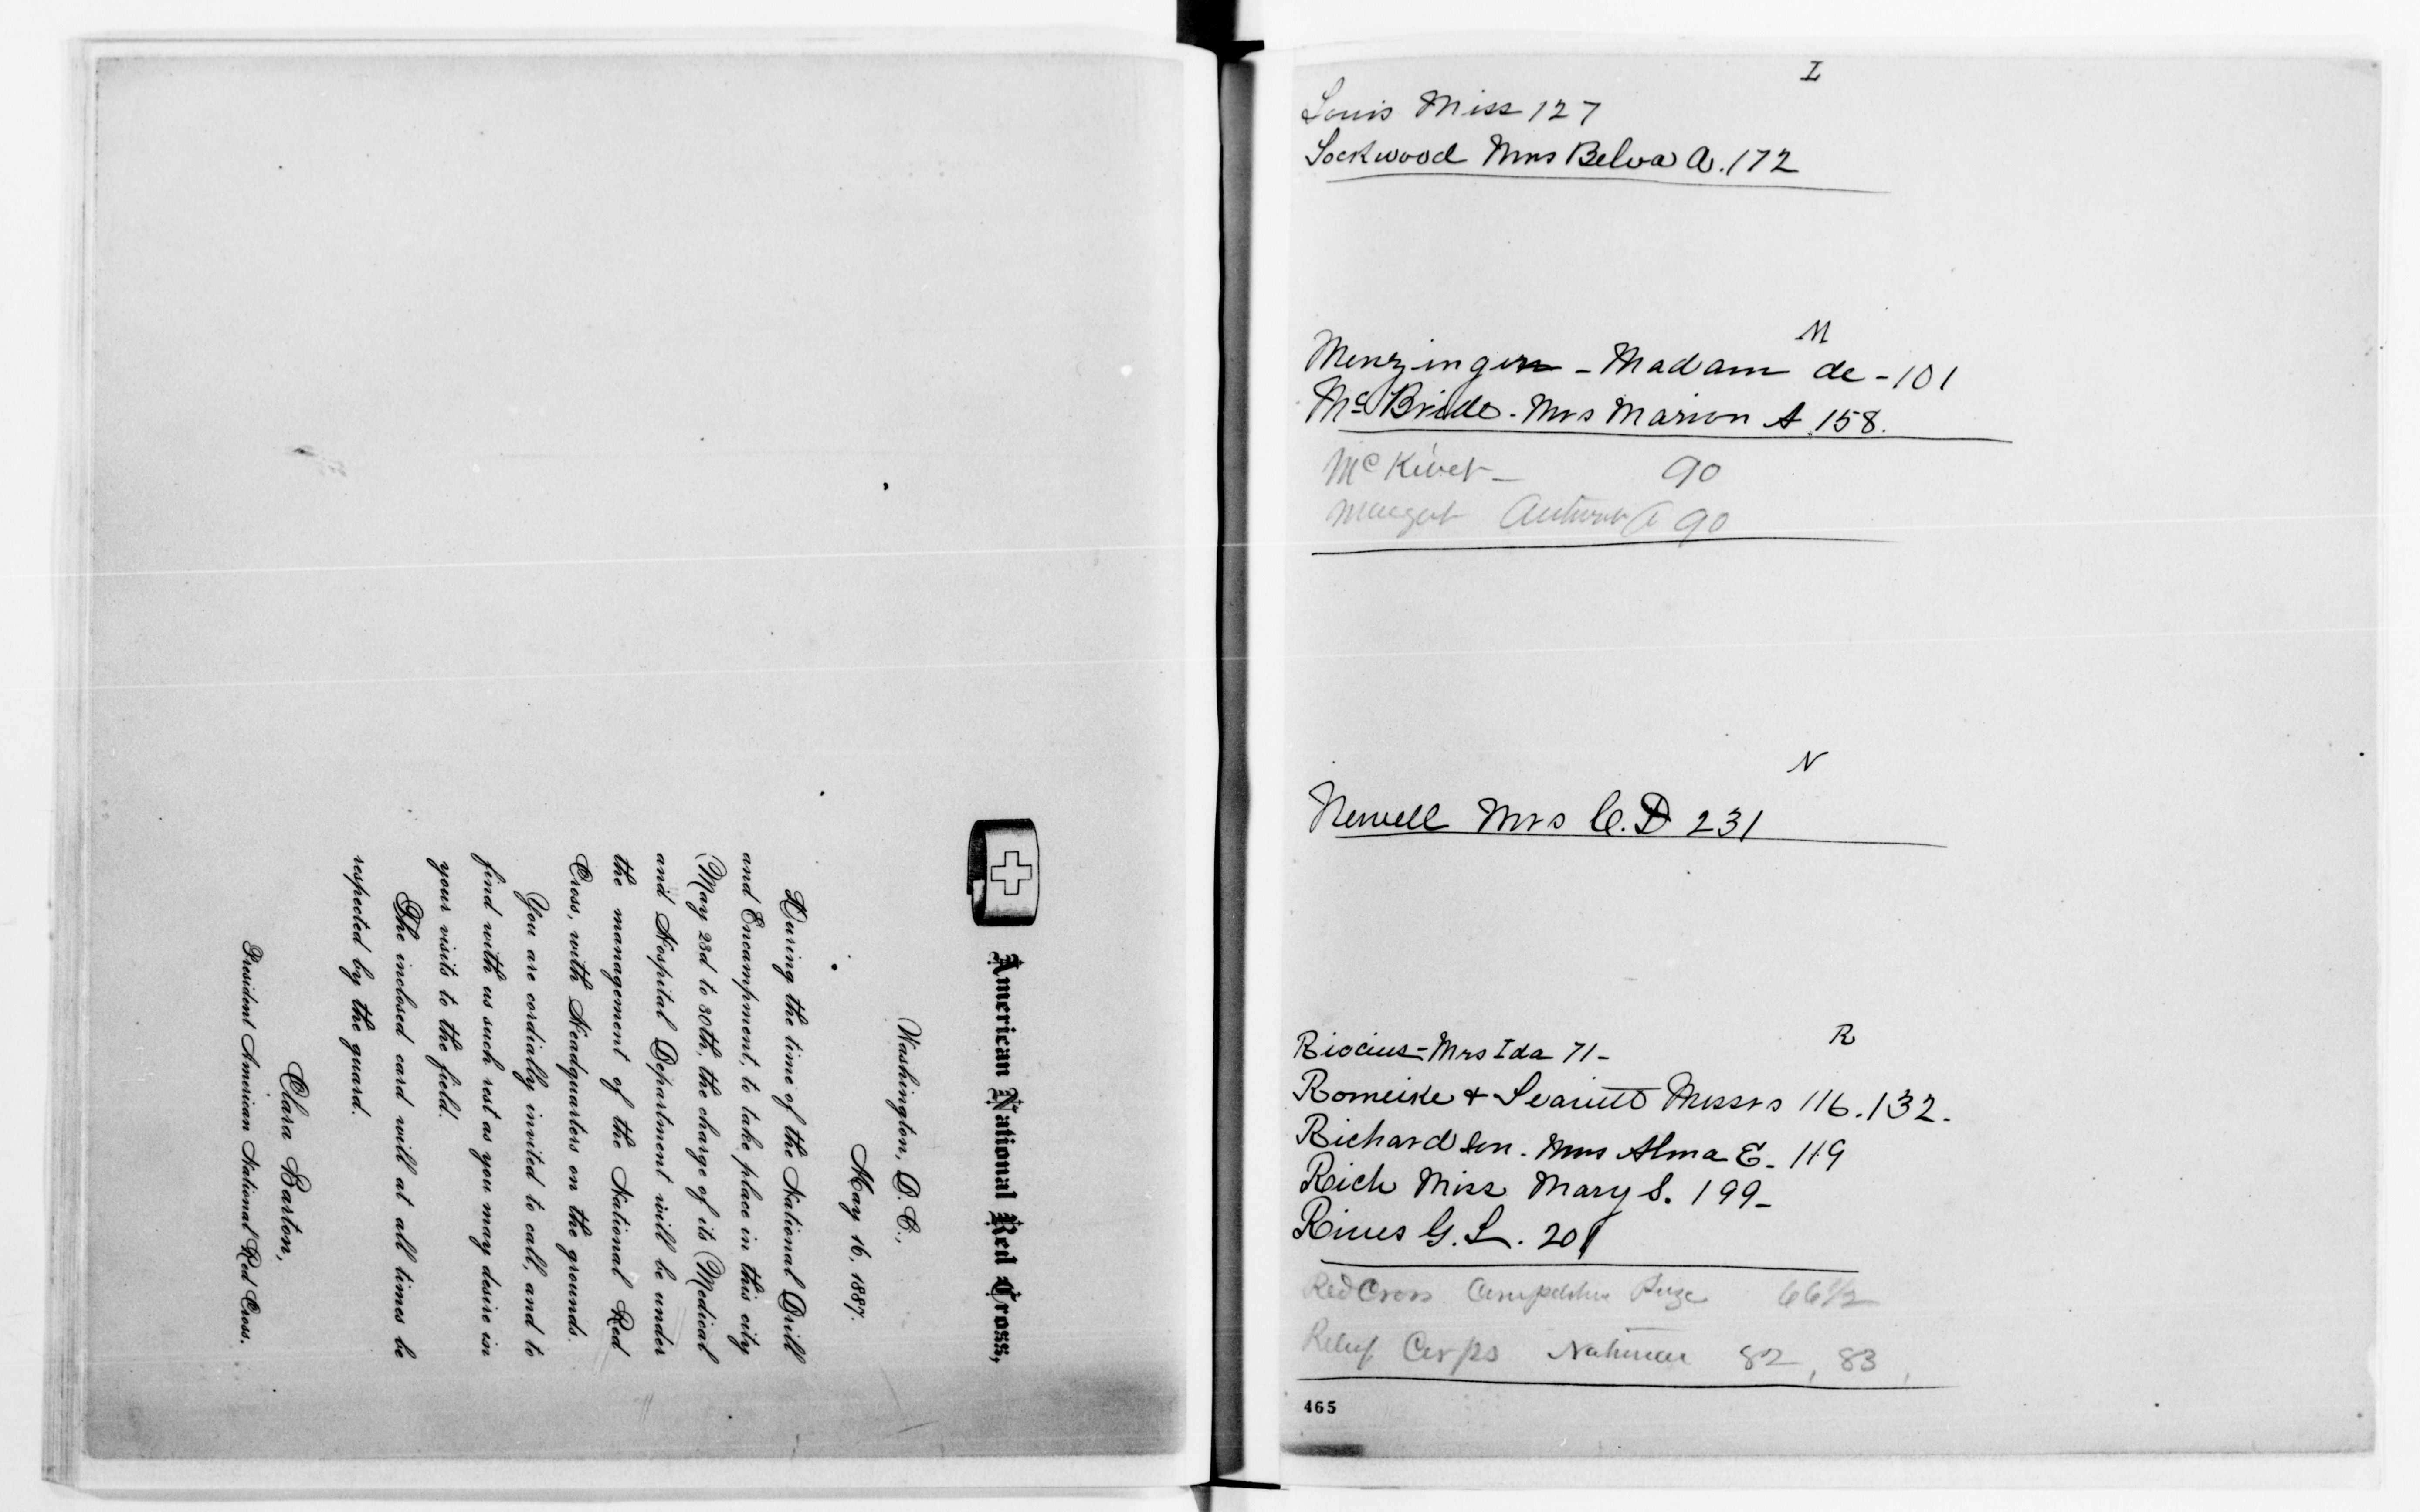 American National Red Cross,
Washington, D.C.,
May 16, 1887.
During the time of the National Drill
and Encampment, to take place in this city
May 23d to 30th, the charge of its Medical
and Hospital Department will be under
the management of the National Red
Cross, with Headquarters on the grounds.
You are cordially invited to call, and to
find with us such rest as you may desire in
your visits to the field.
The inclosed card will at all times be
respected by the guard.
Clara Barton,
President American National Red Cross.
L
Louis Miss 127
Lockwood Mrs Belva A. 172
M
Menzingen - Madam de - 101
McBride - Mrs Marion A 158.
McKivet - 90
90
N
Newell Mrs C. D 231
R
Mrs Ida 71 -
Romeike & Leavitt Messrs 116. 132.
Richardson. Mrs Alma E. 119
Rich Miss Mary S. 199 -
Rives G. L. 201
Red Cross 66 1/2
Relief Corps National 82, 83,
465